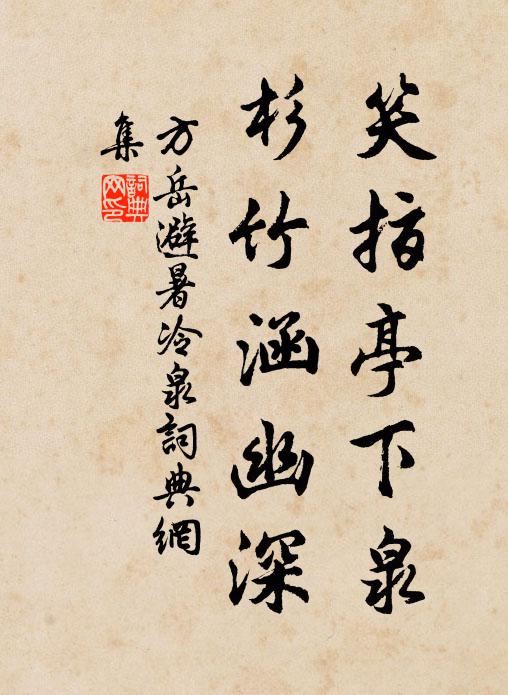 笑指亭下泉
杉竹涵幽深
方岳避暑冷泉詞典網
集
詞典網印